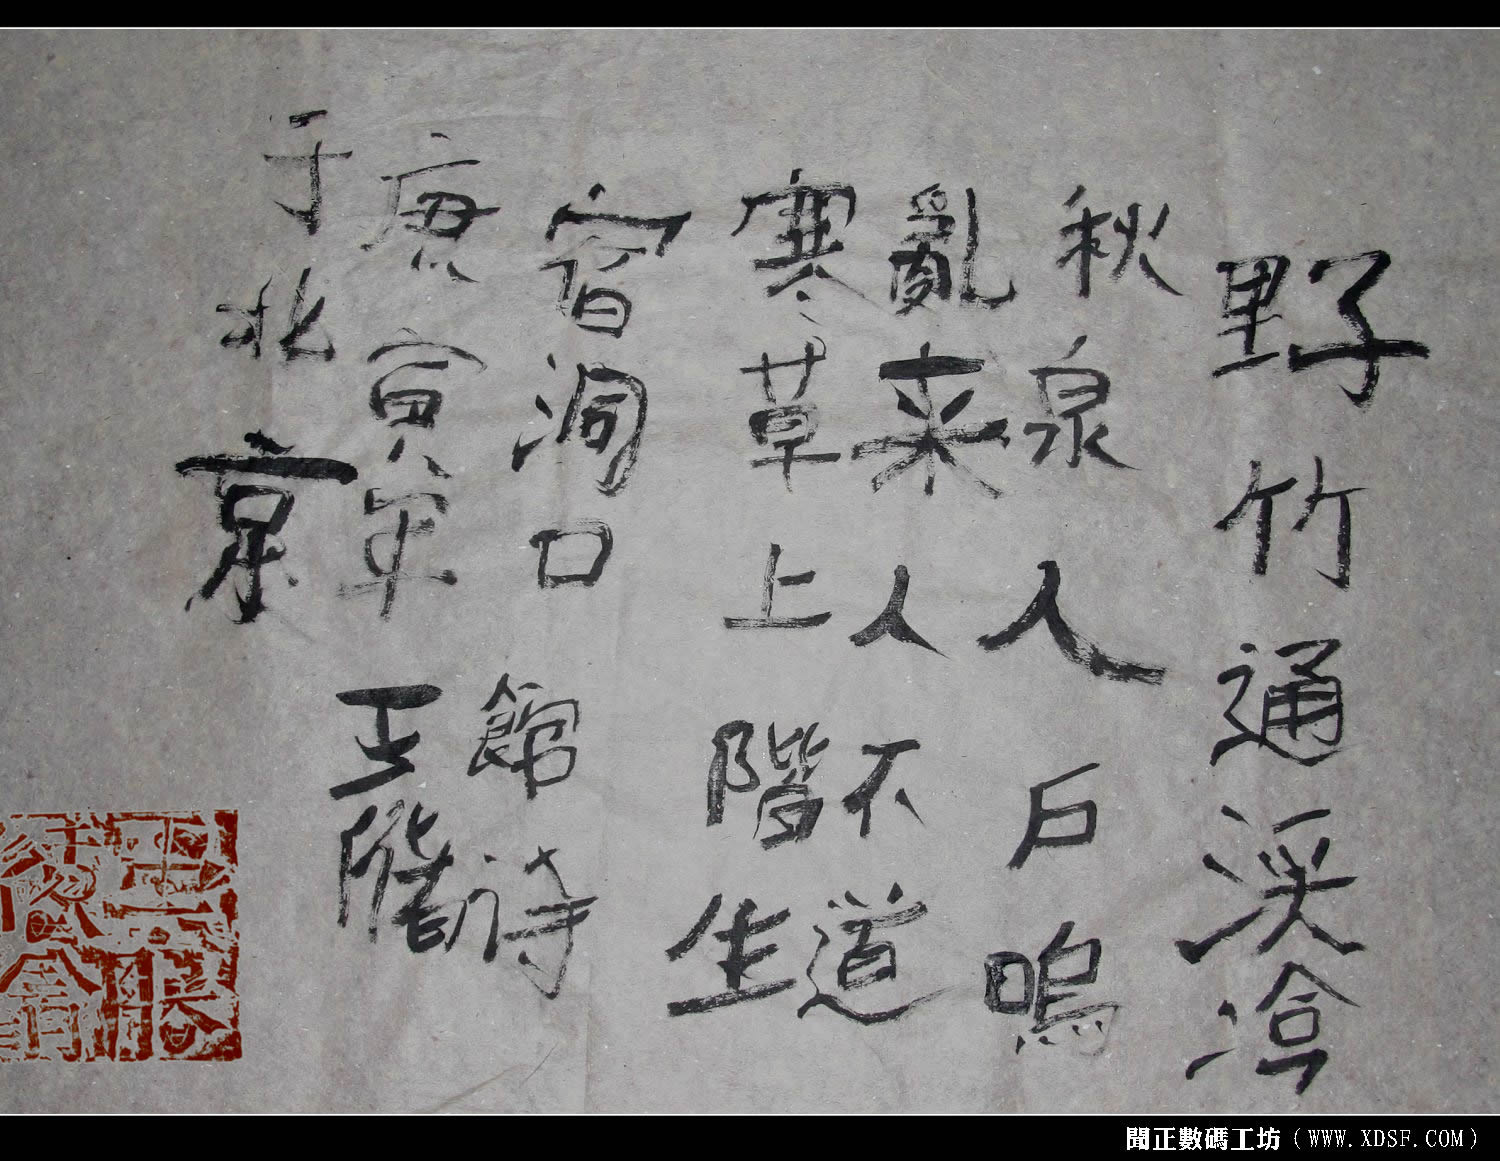 野竹通溪冷
秋泉入户鳴
亂来人不道
寒草上階生
宿洞口館詩
庚寅年王階
于北京
聞正數碼工坊（WWW.XDSF.COM）